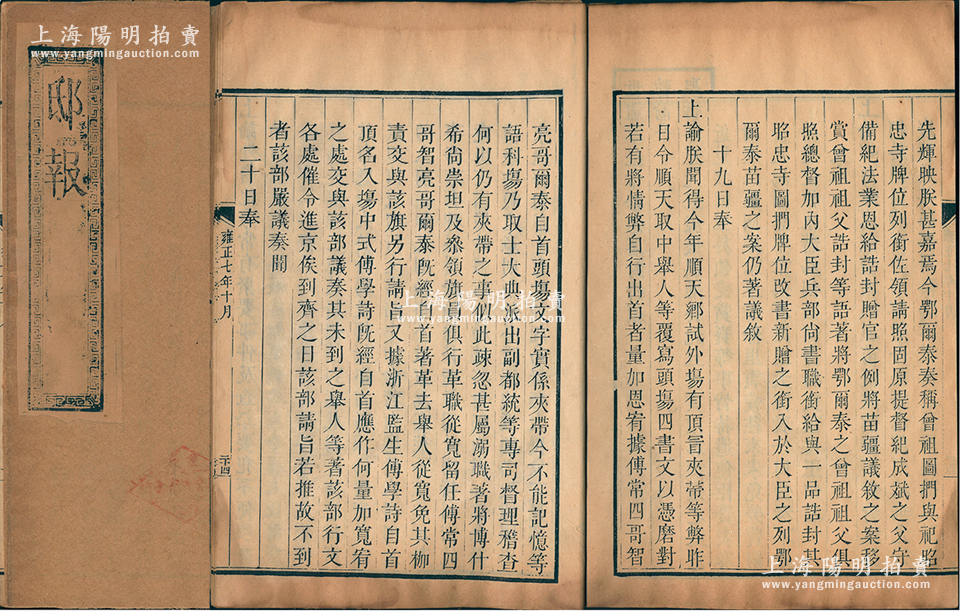 上海陽明拍賣
www.yangmingauction.com
邸報
先輝映朕甚嘉焉今鄂爾泰奏稱曾祖圖捫與祀昭
忠寺牌位列銜佐領請照固原提督紀成斌之父守
備紀法業恩給誥封贈官之例將苗疆議敘之案移
賞曾祖祖父誥封等語著將鄂爾泰之曾祖祖父俱
照總督加內大臣兵部尚書職銜給與一品誥封其
昭忠寺圖捫牌位改書新贈之銜入於大臣之列鄂
爾泰苗疆之案仍著議敘
十九日奉
上諭朕聞得今年順天鄉試外塲有頂冒夾帶等弊昨
日令順天取中舉人等覆寫頭塲四書文以憑磨對
若有將情弊自行出首者量加恩宥據傅常四哥智
亮哥爾泰自首頭塲文字實係夾帶今不能記憶等
語科塲乃取士大典派出副都統等專司督理稽查
何以仍有夾帶之事似此疎忽甚屬溺職著將博什
希尚崇坦及叅領旗員俱行革職從寬留任傅常四
哥智亮哥爾泰旣經自首著革去舉人從寬免其枷
責交與該旗另行請旨又據浙江監生傅學詩自首
頂名入塲中式傅學詩旣經自首應作何量加寬宥
之處交與該部議奏其未到之舉人等著該部行文
各處催令進京俟到齊之日該部請旨若推故不到
者該部嚴議奏聞
二十日奉
雍正七年十月
二十四
上海陽明拍賣
www.yangmingauction.com
上海陽明拍賣
www.yangmingauction.com
上海陽明拍賣
www.yangmingauction.com